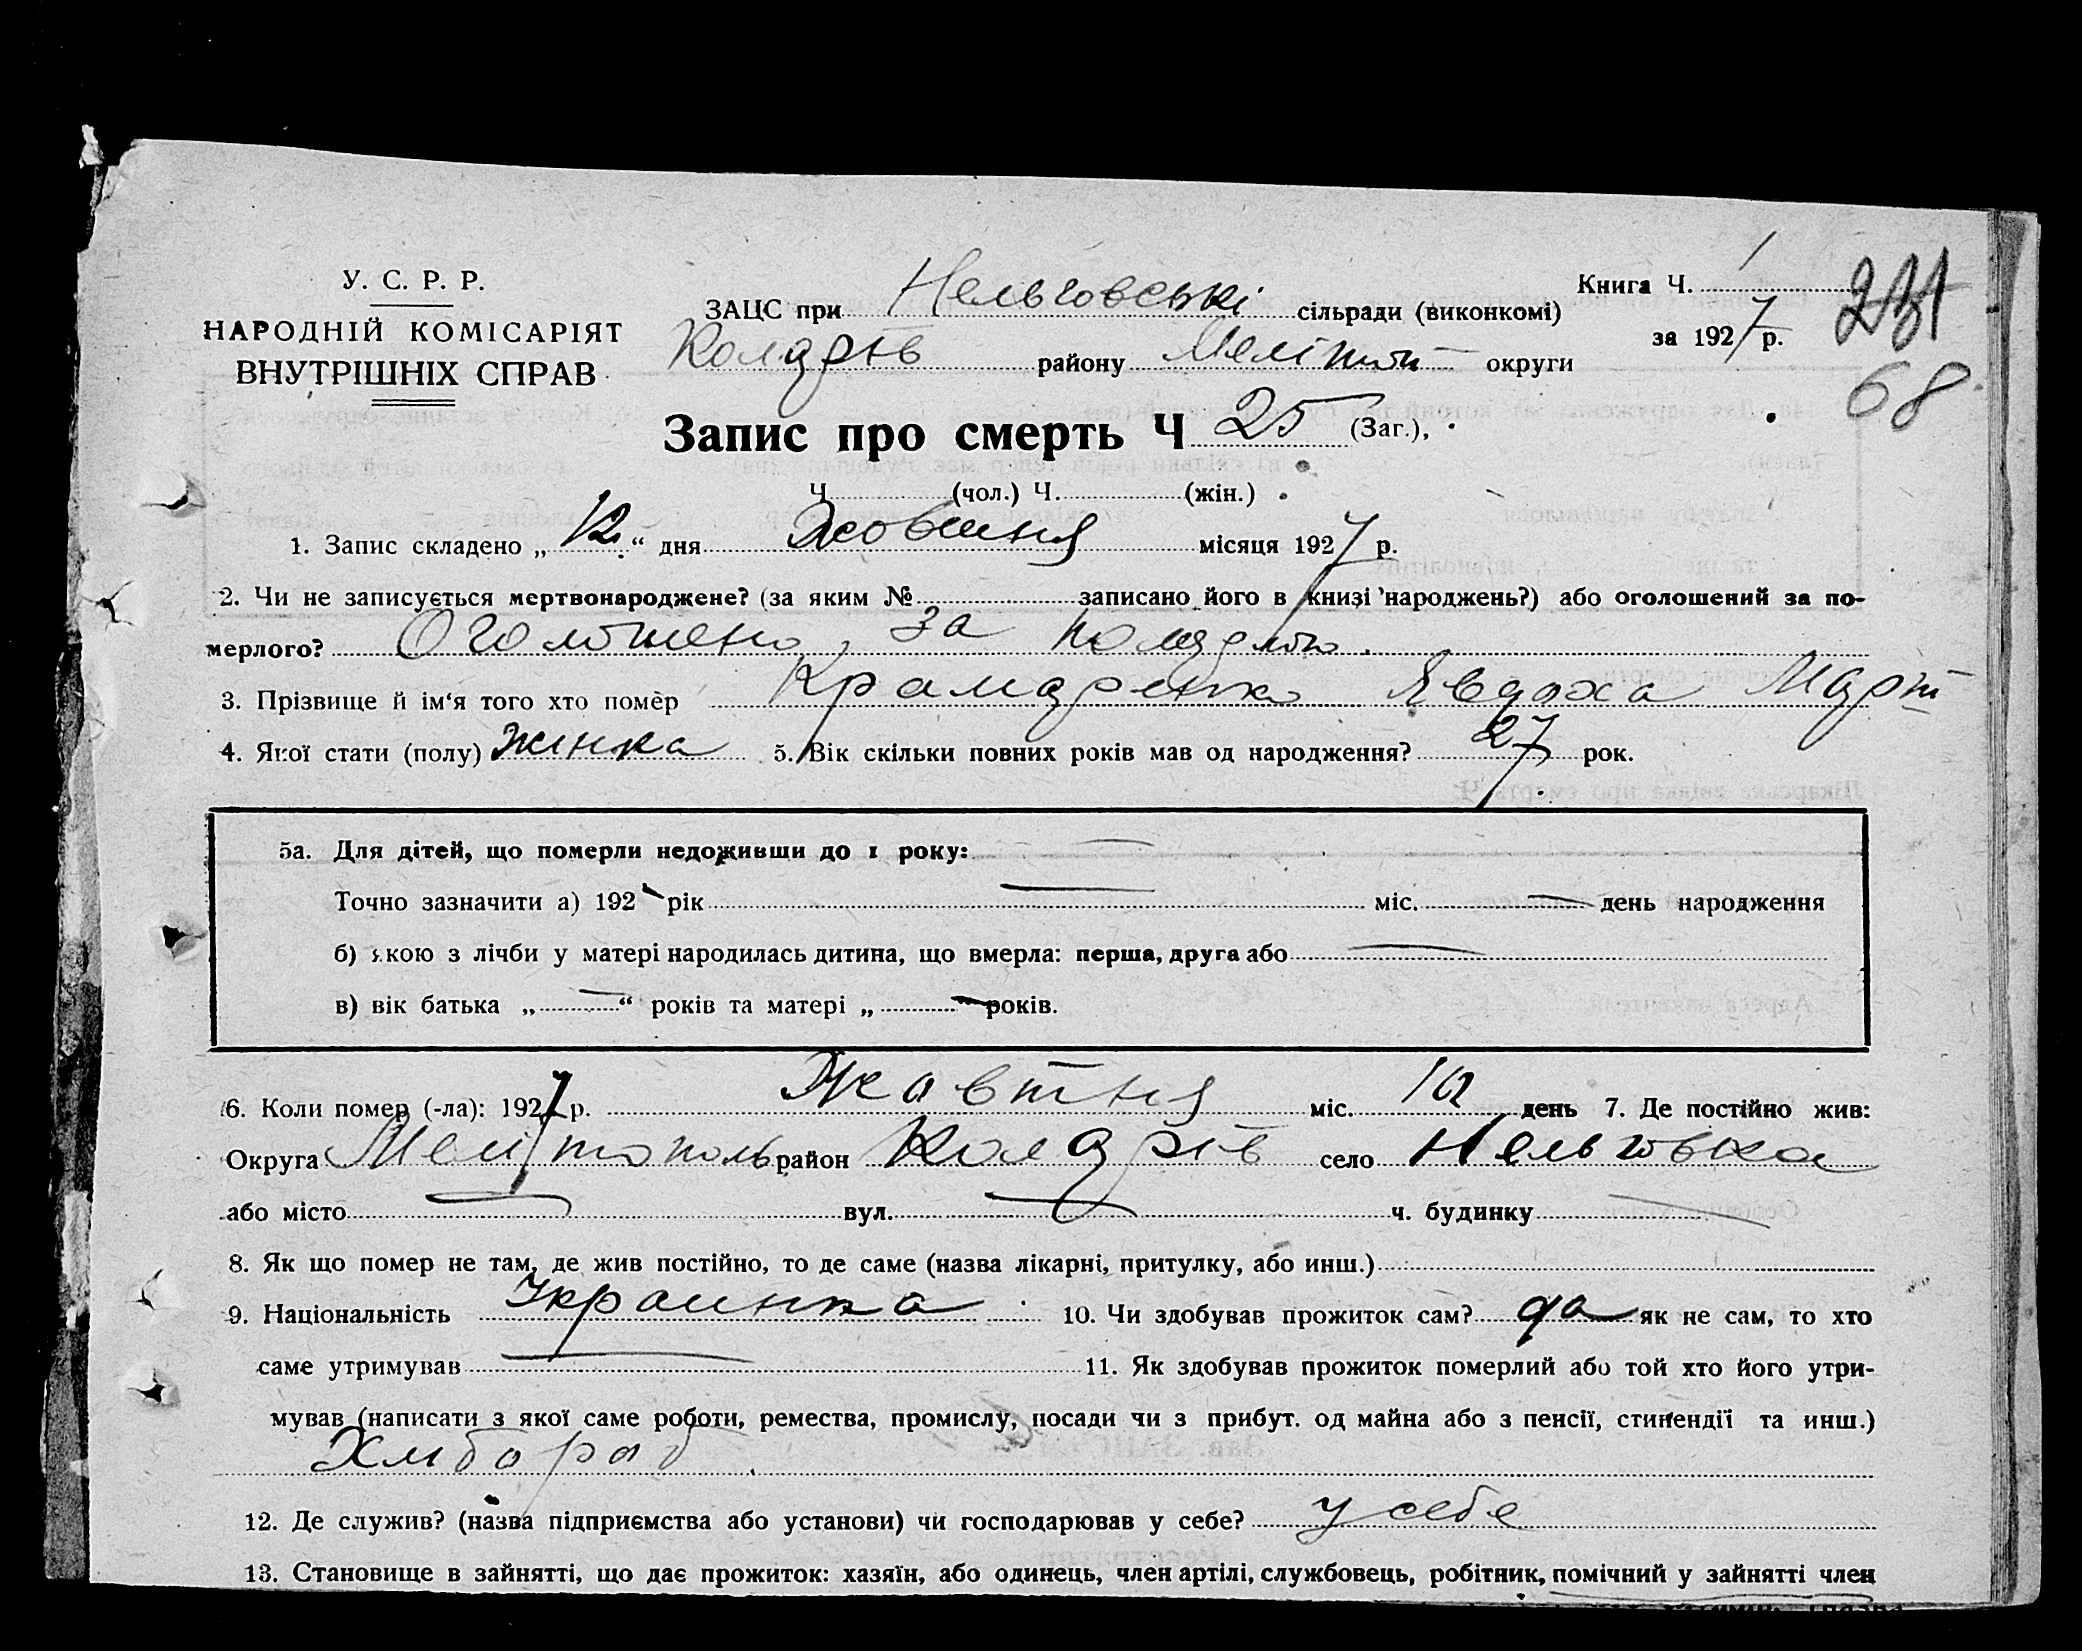 У. С. Р. Р.
НАРОДНІЙ КОМІСАРІЯТ
ВНУТРІШНІХ СПРАВ
Книга Ч. 1
за 1927 р.
231
68
ЗАЦС при Нельговські сільради (виконкомі)
району Меліт округи
Запис про смерть Ч 25 (Заг.),
Ч (чол.) Ч. (жін.)
1. Запис складено „12“ дня Жовтня місяця 1927 р.
2. Чи не записується мертвонароджене? (за яким № записано його в книзі народжень?) або оголошений за по-
мерлого? Оголошено за
3. Прізвище й ім‘я того хто помер Крамаренко Явдоха Март
4. Якої стати (полу) Жінка 5. Вік скільки повних років мав од народження? 27 рок.
5а. Для дітей, що померли недоживши до 1 року: —
Точно зазначити а) 192 рік — міс. — день народження
б) якою з лічби у матері народилась дитина, що вмерла: перша, друга або —
в) вік батька „—“ років та матері „— років.
6. Коли помер (-ла): 1927 р. Жавтня міс. день 7. Де постійно жив:
Округа Мелітополь район село Нельговка
або місто — вул. — ч. будинку —
8. Як що помер не там, де жив постійно, то де саме (назва лікарні, притулку, або инш.)
9. Національність Украинка 10. Чи здобував прожиток сам? да як не сам, то хто
саме утримував — 11. Як здобував прожиток померлий або той хто його утри-
мував (написати з якої саме роботи, ремества, промислу, посади чи з прибут. од майна або з пенсії, стипендії та инш.)
Хліборад
12. Де служив? (назва підприємства або установи) чи господарював у себе? у себе
13. Становище в зайнятті, що дає прожиток: хазяїн, або одинець, член артілі, службовець, робітник, помічний у зайнятті член